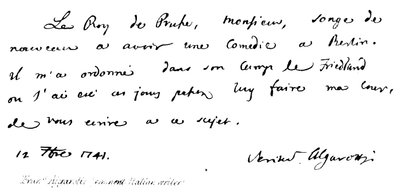 Le Roy de Prusse, monsieur, songe de
nouveau a avoir une Comedie a Berlin.
il m'a ordonné dans son Camp de Friedland
ou J'ai eté ces jours passés luy faire ma Cour,
de vous ecrire a ce sujet.
12 7bre 1741. Algarotti
Algarotti eminent Italian writer